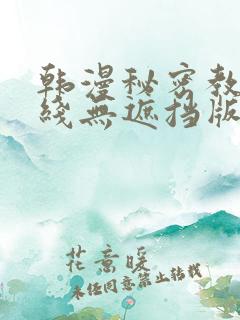 韩漫秘密教
线无遮挡版
花意暖
未经同意禁止转载